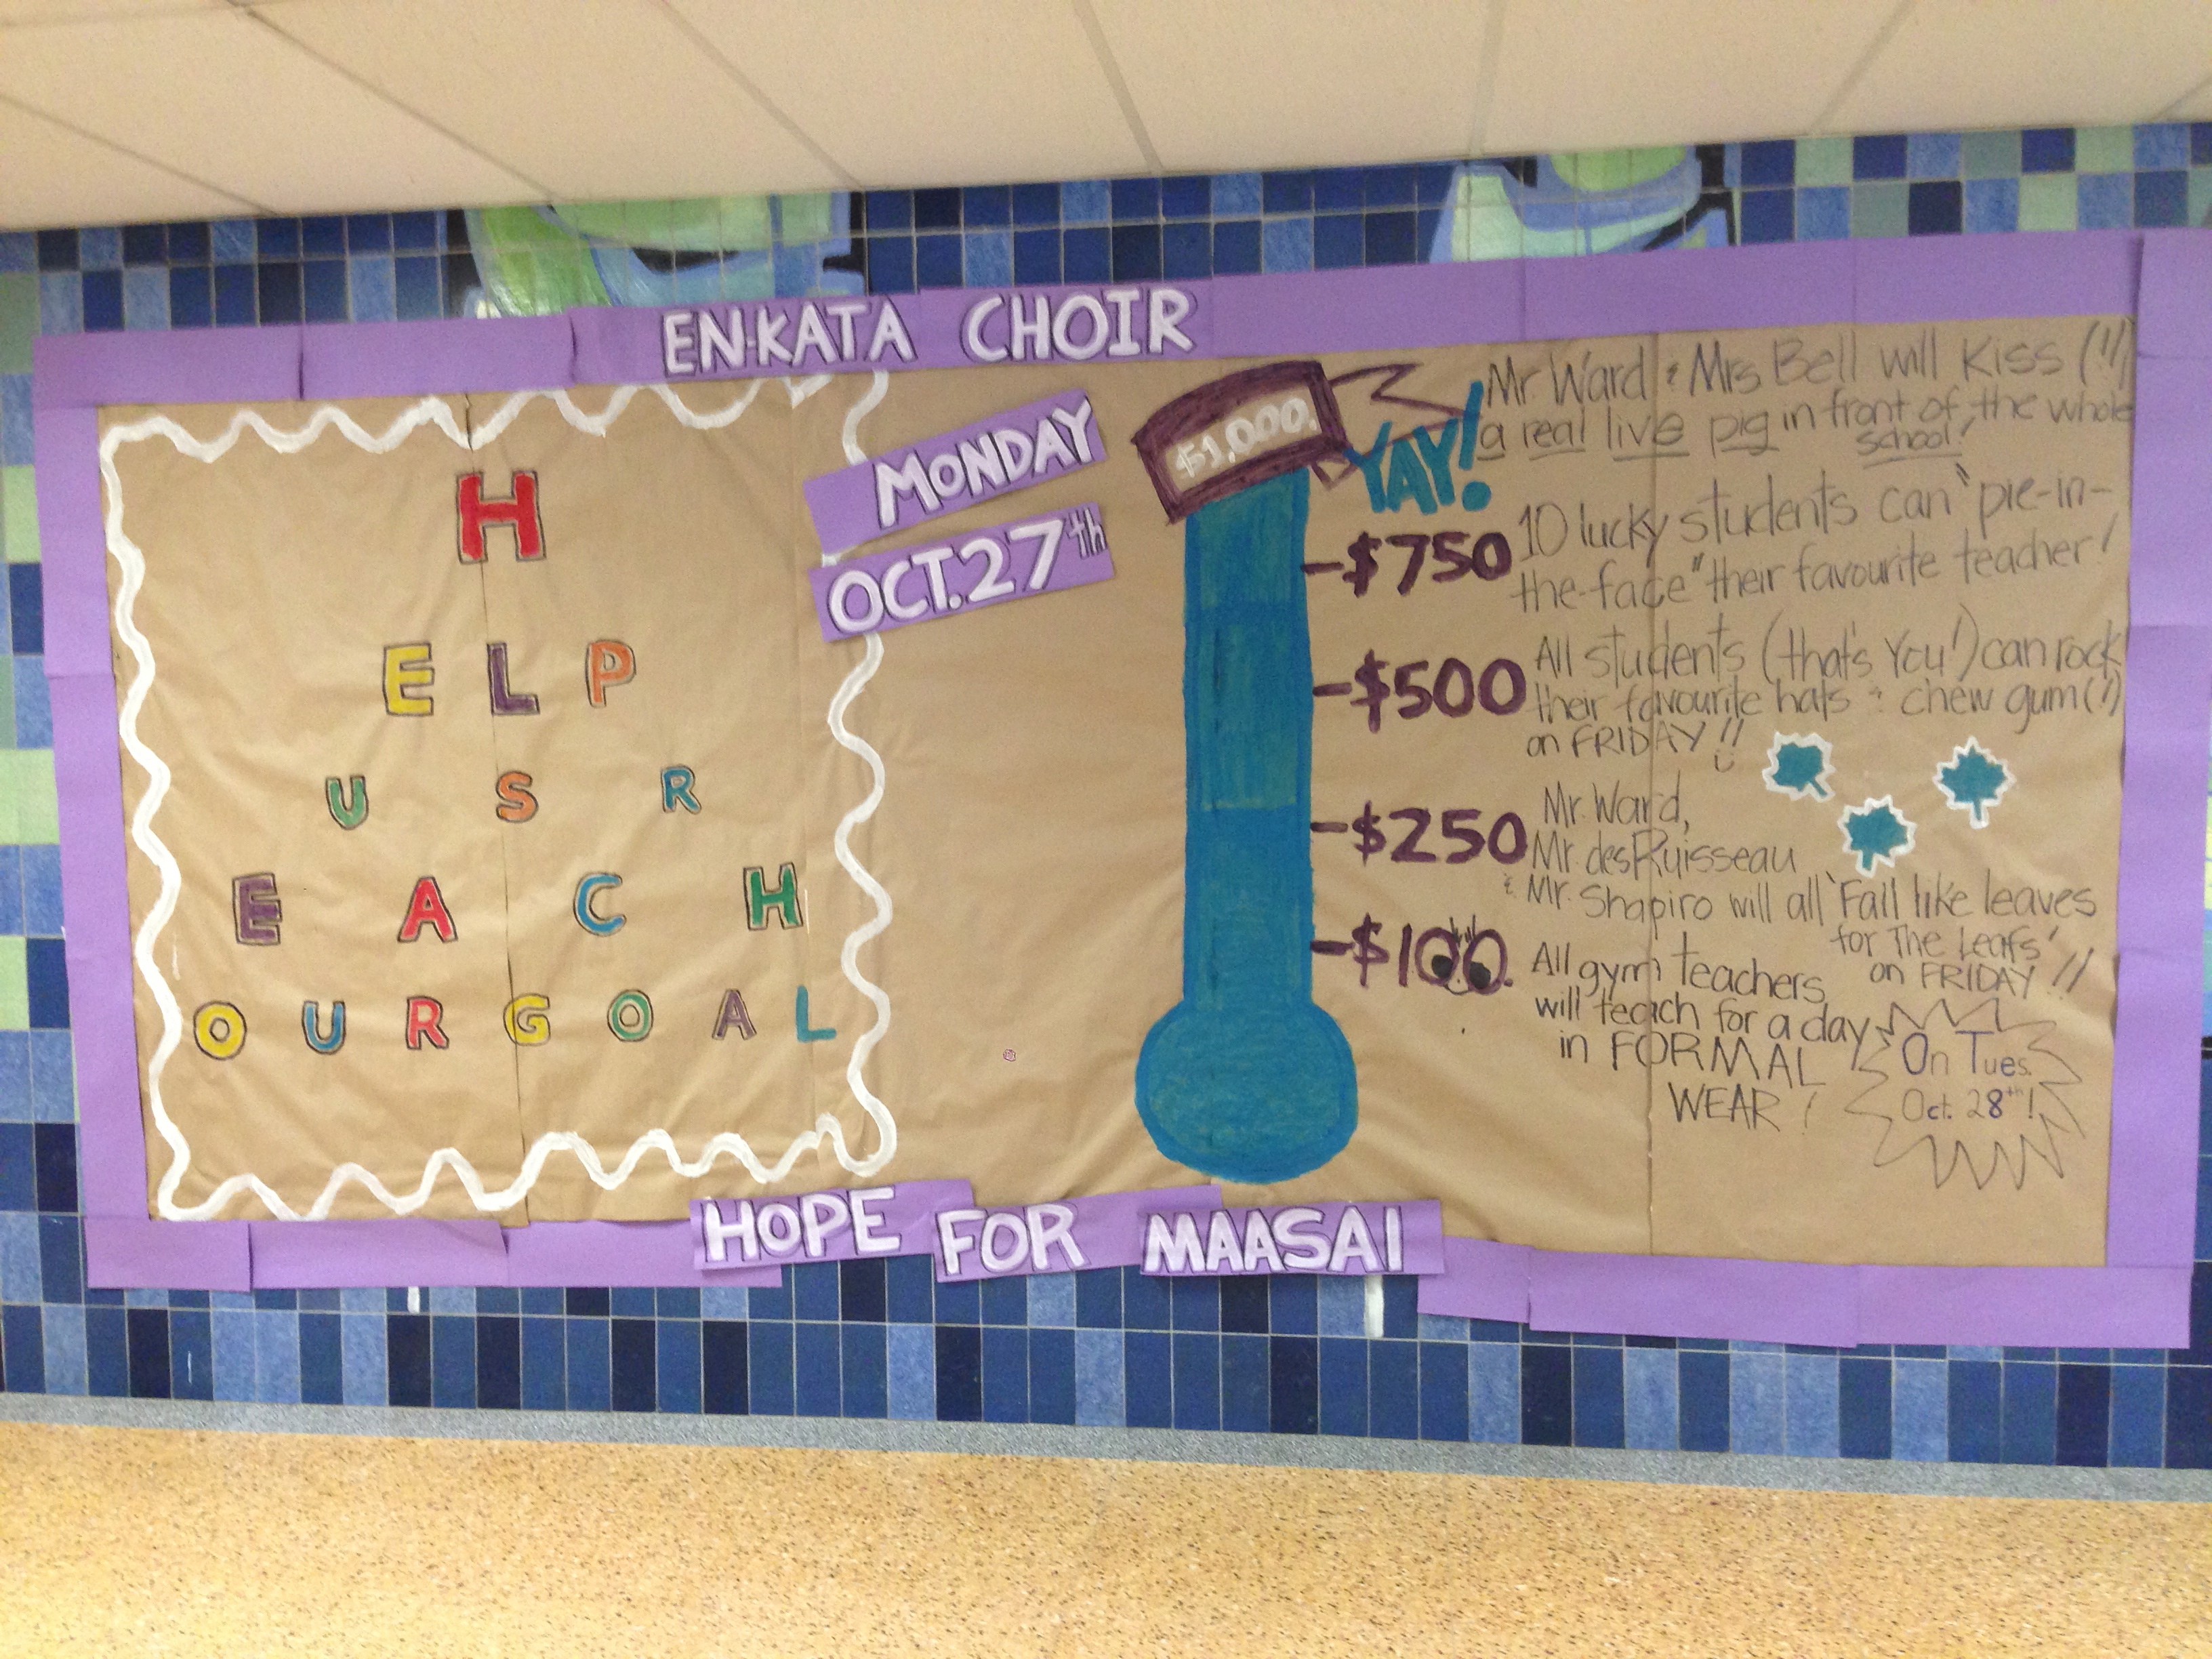 EN-KATA CHOIR
H
E L P
U S R
E A C H
O U R G O A L
MONDAY
OCT. 27th
$1,000.
YAY!
Mr. Ward & Mrs Bell will Kiss (!!)
a real live pig in front of the whole
school!
-$750
10 lucky students can "pie-in-
the-face" their favourite teacher!
-$500
All students (that's You!) can rock
their favourite hats & chew gum (!)
on FRIDAY!!
-$250
Mr. Ward,
Mr. desRuisseau
& Mr. Shapiro will all 'Fall like leaves
for The Leafs'
on FRIDAY!!
-$100.
All gym teachers
will teach for a day
in FORMAL
WEAR!
On Tues.
Oct. 28th!
HOPE FOR MAASAI